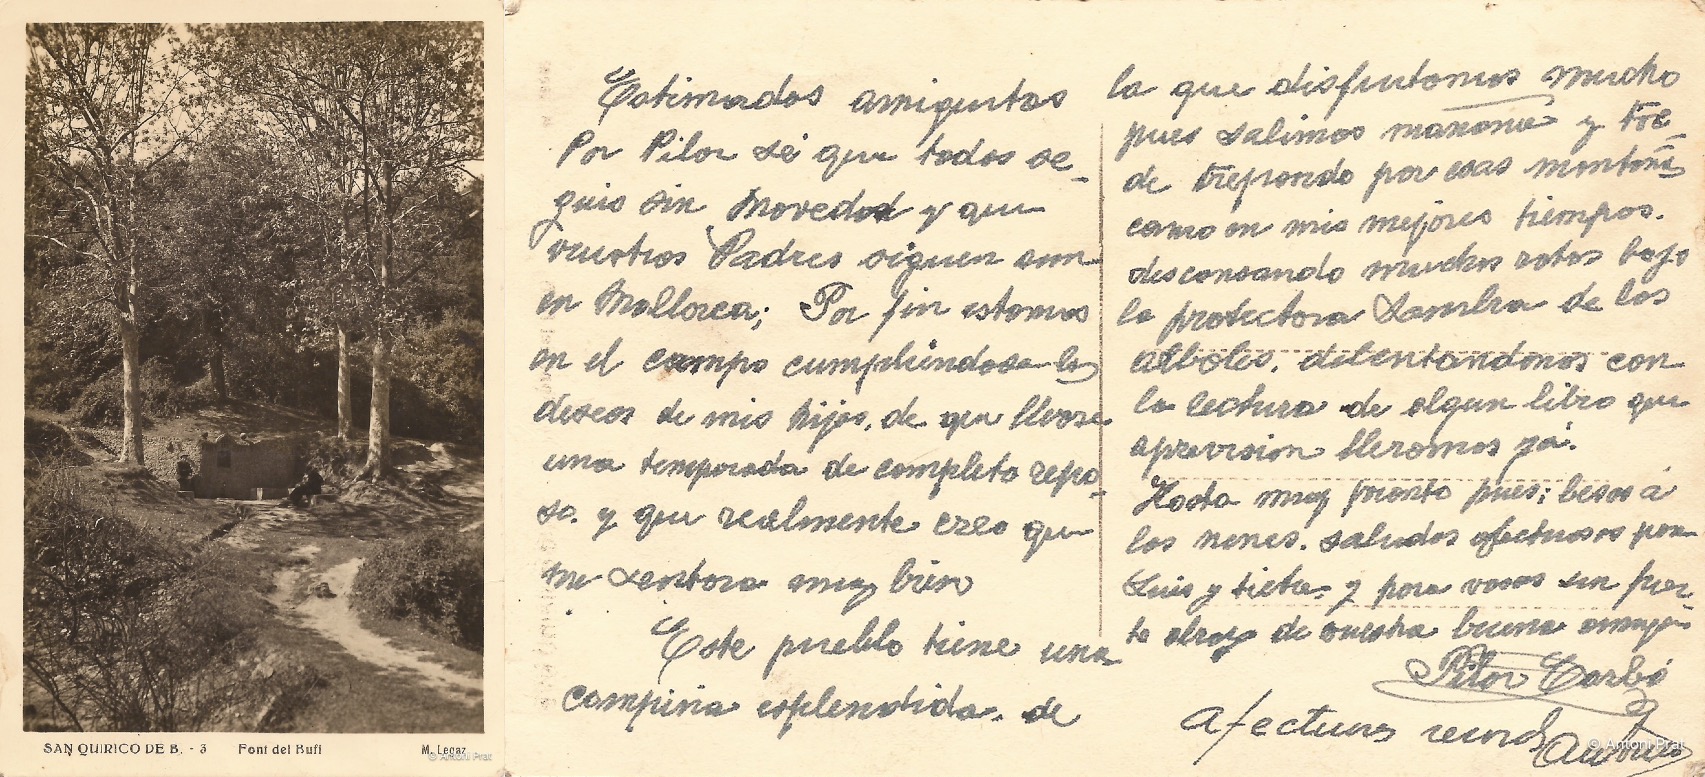 SAN QUIRICO DE B. - 3 Font del Bufi M. Legaz
© Antoni Prat
Estimados amiguitos
Por Pilar sé que todos se-
guis sin novedad y que
vuestros Padres siguen aun
en Mallorca; Por fin estamos
en el campo cumpliéndose los
deseos de mis hijos, de que llevase
una temporada de completo repo-
so. y que realmente creo que
me sentara muy bien
Este pueblo tiene una
campiña esplendida. de
la que disfrutamos mucho
pues salimos mañana y tar
de trepando por esas montañas
como en mis mejores tiempos.
descansando muchos ratos bajo
la protectora sombra de los
alboles. deleitandonos con
la lectura de algun libro que
a prevision llevamos ya.
Hasta muy pronto pues; besos á
los nenes. saludos afectuosos para
Luis y tieta. y para vosos un fuer
te abrazo de vuestra buena amiga
Pilar Carbó
Afectuosos records
© Antoni Prat